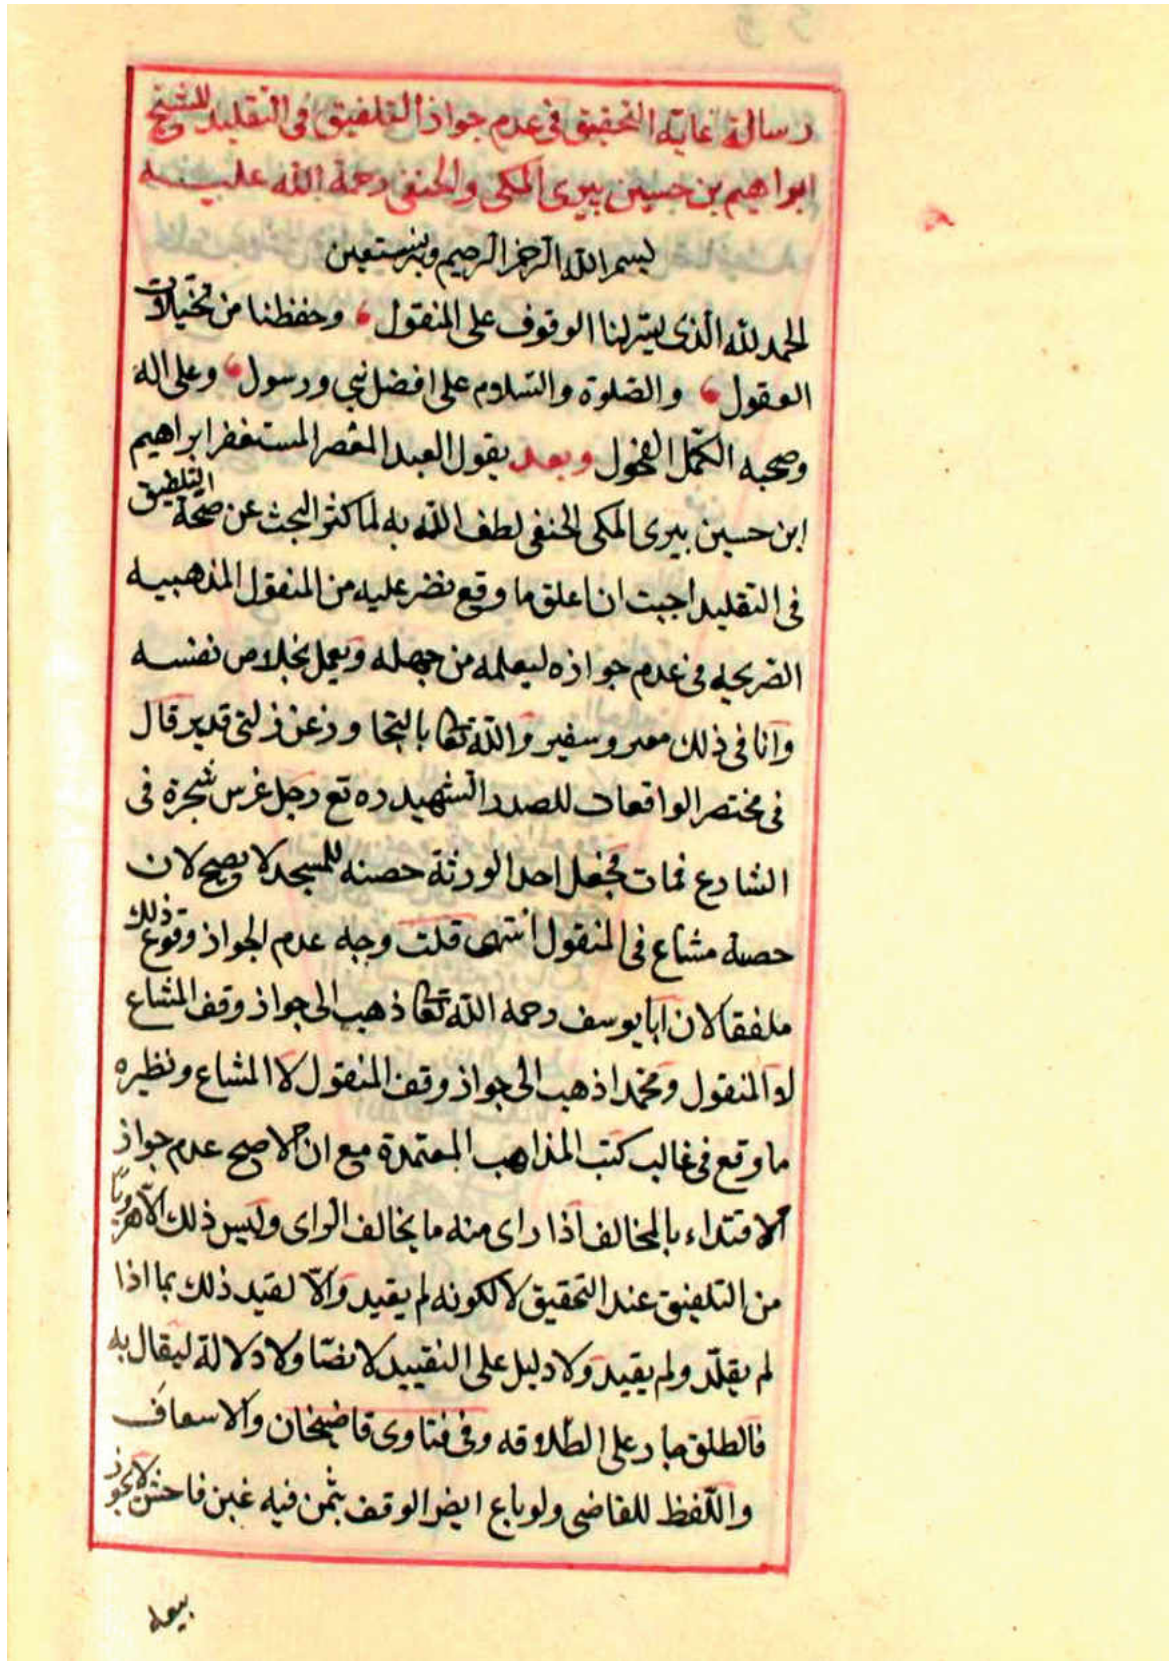 رسالة غاية التحقيق في عدم جواز التلفيق في التقليد للشيخ
ابراهيم بن حسين بيرى المكى والحنفى رحمة الله عليه
بسم الله الرحمن الرحيم وبه نستعين
الحمد لله الذى يسر لنا الوقوف على المنقول وحفظنا من تخيلات
العقول والصلوة والسلام على افضل نبي ورسول وعلى اله
وصحبه الكمّل الفحول وبعد يقول العبد المقصر المستغفر ابراهيم
ابن حسين بيرى المكى الحنفى لطف الله به لما كثر البحث عن صحة التلفيق
فى التقليد اجبت ان اعلق ما وقع نضر عليه من المنقول المذهبيه
الصريحه فى عدم جوازه ليعلمه من جهله ويعمل بخلاص نفسه
وانا فى ذلك معبر وسفير والله تعا بالتجاوز عن زلتى قدير قال
فى مختصر الواقعات للصدر الشهيد ره تع رجل غرس شجرة فى
الشارع فمات فجعل احد الورثة حصته للمسجد لا يصح لان
حصة مشاع فى المنقول انتهى قلت وجه عدم الجواز وقوع ذلك
ملفقا لان ابا يوسف رحمه الله تعا ذهب الى جواز وقف المشاع
لا المنقول ومحمدا ذهب الى جواز وقف المنقول لا المشاع ونظيره
ما وقع فى غالب كتب المذاهب المعتمدة مع ان الاصح عدم جواز
الاقتداء بالمخالف اذا راى منه ما يخالف الراى وليس ذلك الا هروبا
من التلفيق عند التحقيق لا لكونه لم يقيد والا لقيد ذلك بما اذا
لم يقلد ولم يقيد ولا دليل على التقييد لا نصا ولا دلالة ليقال به
فالطلق جار على اطلاقه وفى فتاوى قاضيخان والاسعاف
واللفظ للقاضى ولو باع ارض الوقف بثمن فيه غبن فاحش لا يجوز
بيعه